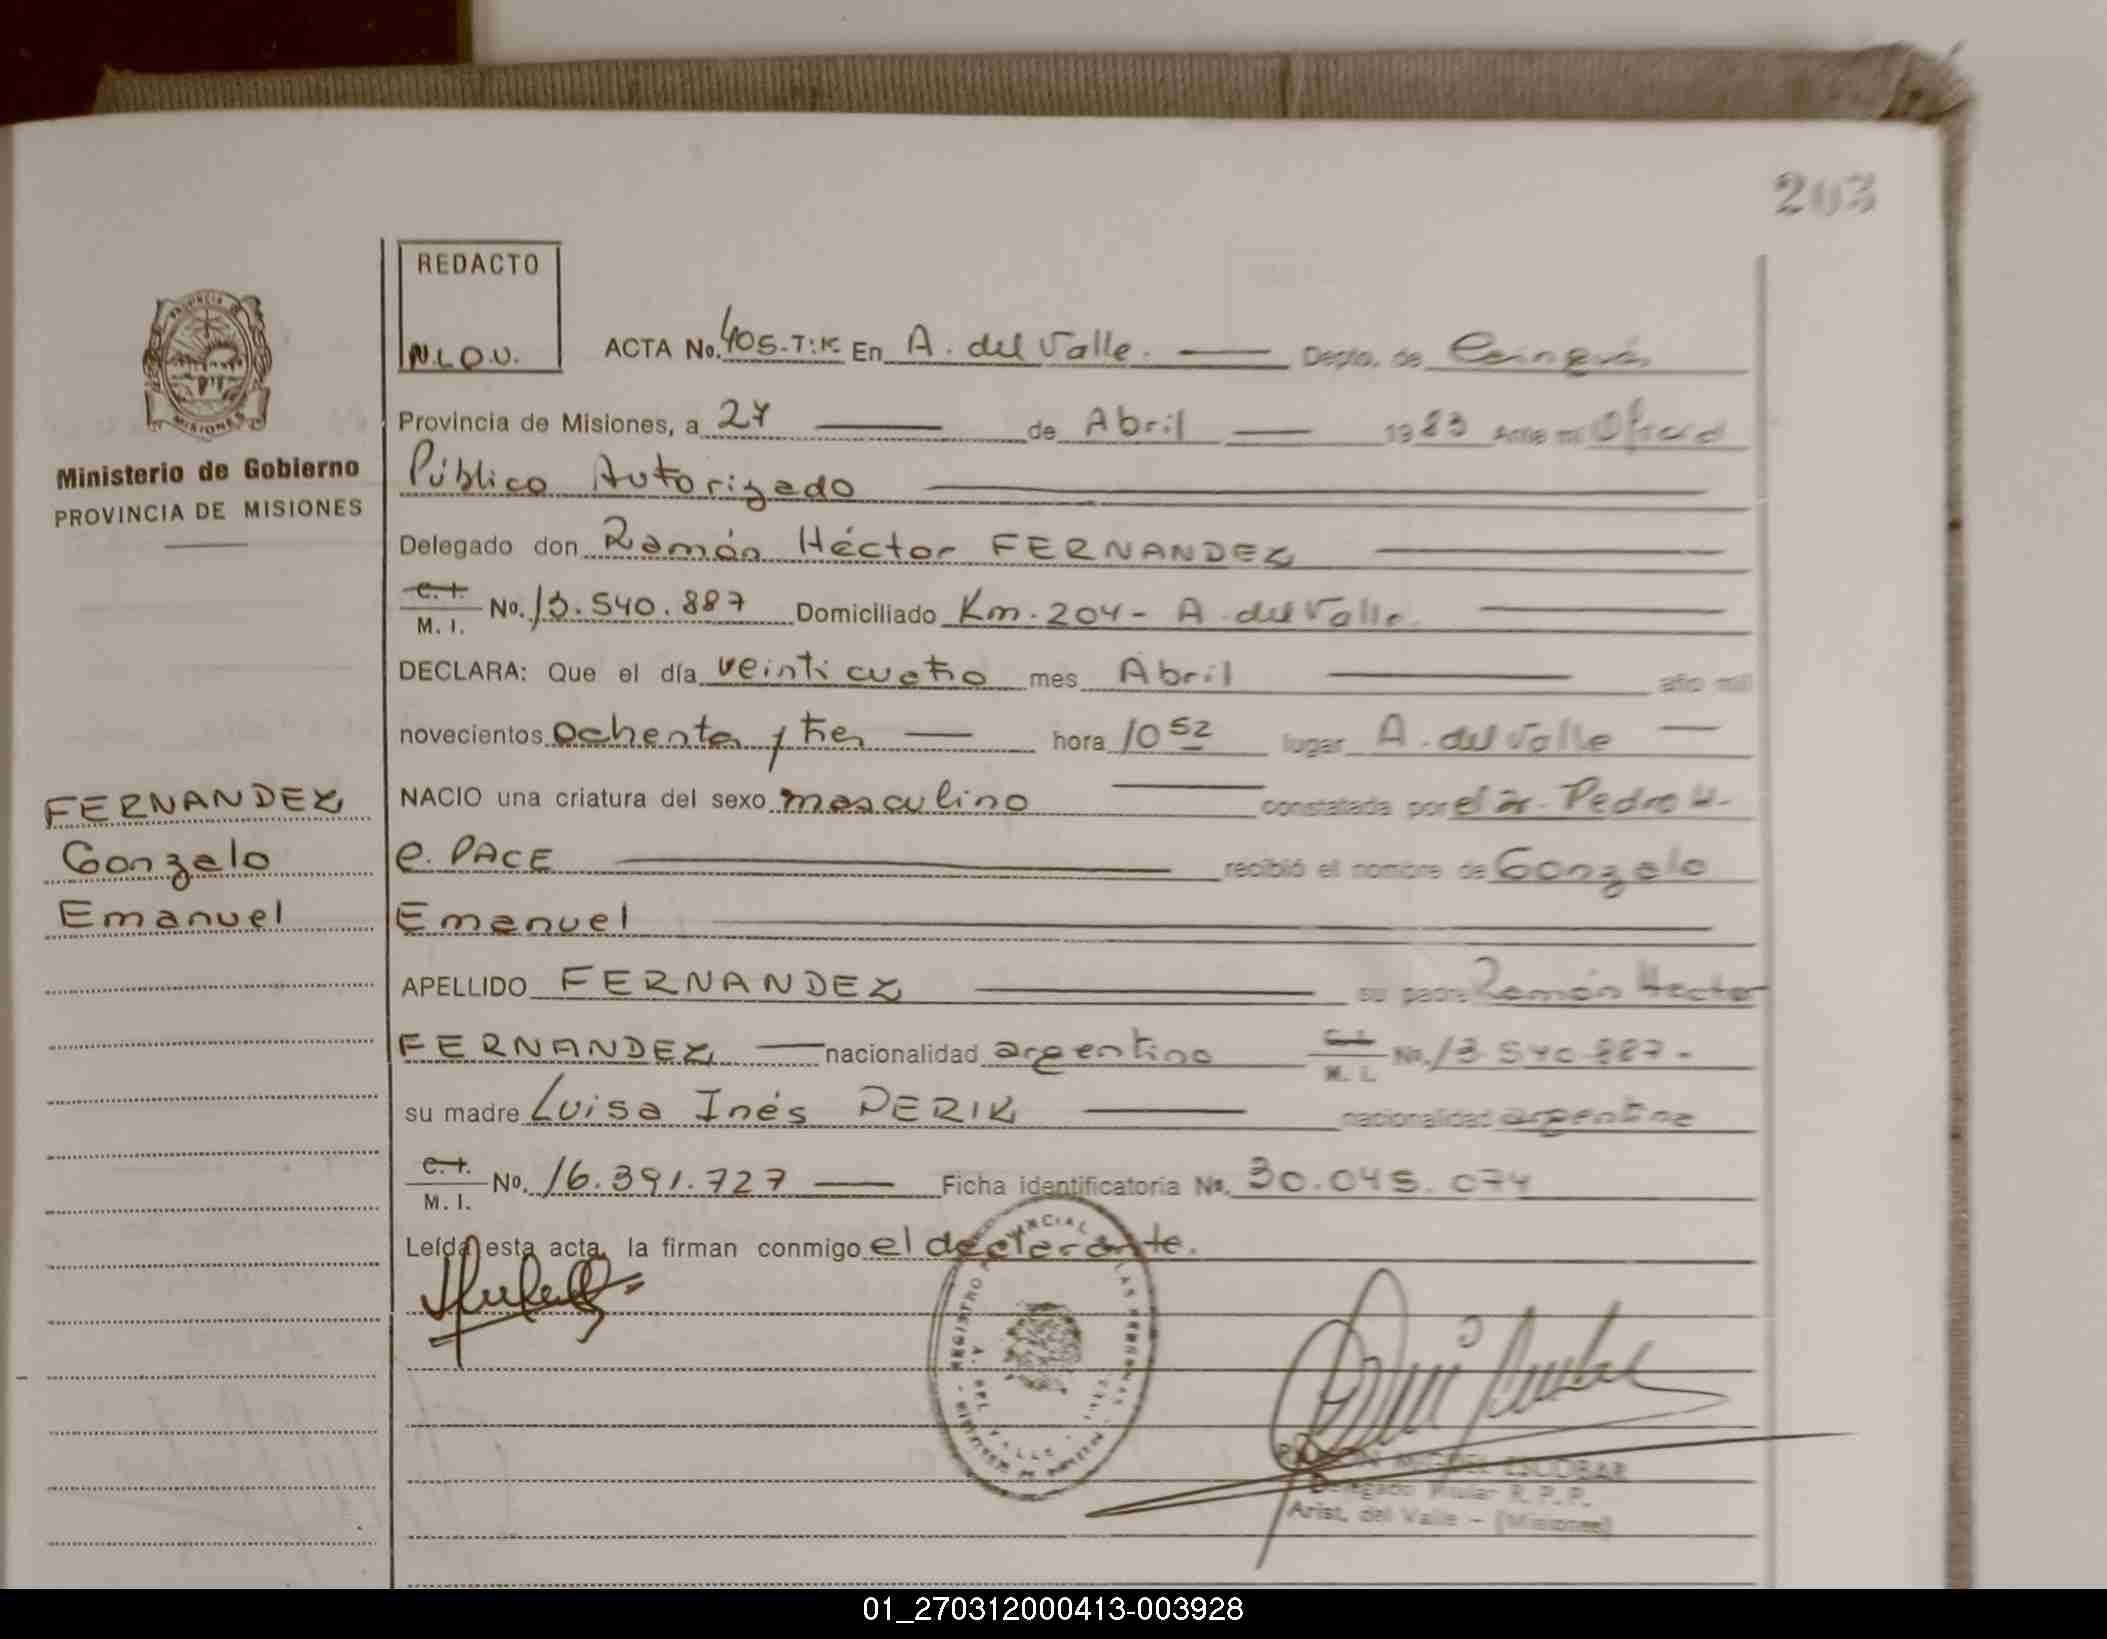 203
REDACTO
N.L.O.V.
ACTA No. 405-T:K- En A. del Valle. Depto. de Cainguás
Provincia de Misiones, a 27 de Abril 1983 Ante mi Oficial
Público Autorizado
Ministerio de Gobierno
PROVINCIA DE MISIONES
Delegado don Ramón Héctor FERNANDEZ
C.I. M. I. No. 13.540.887 Domiciliado Km. 204- A. del Valle.
DECLARA: Que el día veinti cuatro mes Abril año mil
novecientos ochenta y tres hora 10 52 lugar A. del Valle
FERNANDEZ
Gonzalo
Emanuel
NACIO una criatura del sexo masculino constatada por el Dr. Pedro H.
C. PACE recibió el nombre de Gonzalo
Emanuel
APELLIDO FERNANDEZ su padre Ramón Hector
FERNANDEZ nacionalidad argentino C.I. M. I. No. 13.540.887-
su madre Luisa Inés DERIK nacionalidad argentina
C.I. M. I. No. 16.391.727 Ficha identificatoria No. 30.045.074
Leída esta acta, la firman conmigo el declarante.
REGISTRO PROVINCIAL DE LAS PERSONAS
DEL VALLE
RAMON MIGUEL ESCOBAR
Delegado Titular R.P.P.
Arist. del Valle - (Misiones)
01_270312000413-003928